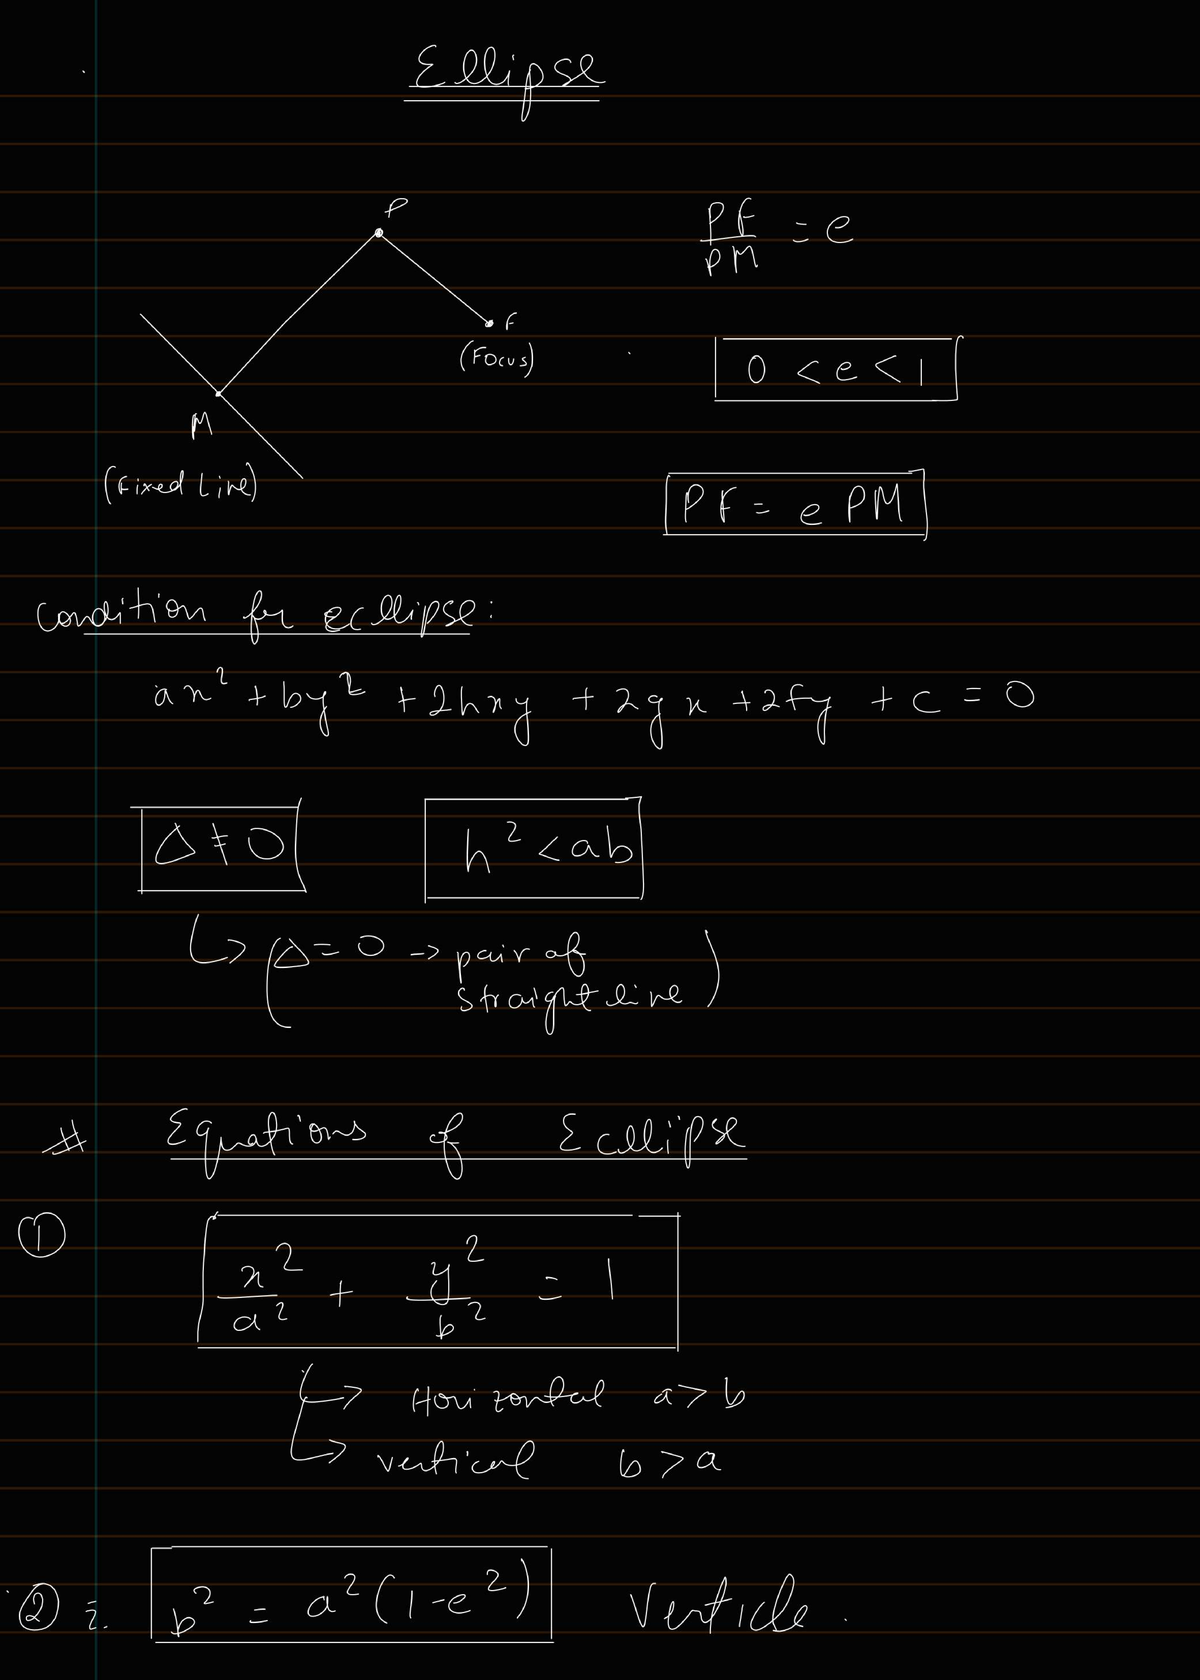 Ellipse
P
PF/PM = e
F
(Focus)
0 < e < 1
M
(Fixed Line)
PF = e PM
Condition for ecllipse:
ax² + by² + 2hxy + 2gx + 2fy + c = 0
Δ ≠ 0 h² < ab
↳ (Δ = 0 -> pair of
straight line)
# Equations of Ecllipse
① x²/a² + y²/b² = 1
↳ Horizontal a > b
↳ vertical b > a
② i. b² = a²(1-e²) Verticle.